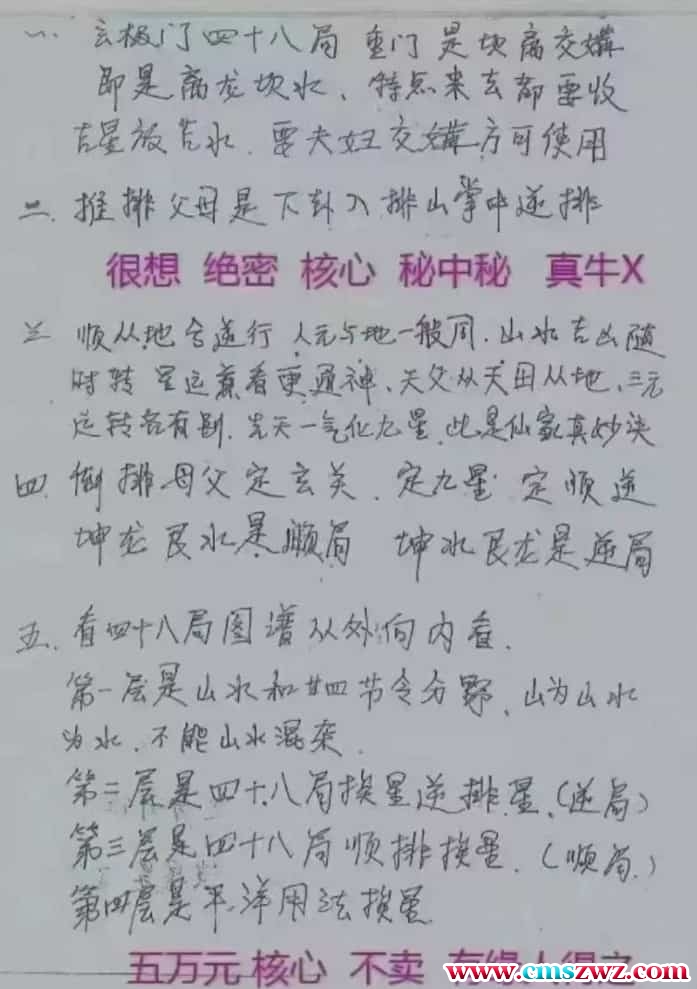 一、玄极门四十八局 重门是坎离交媾
即是离龙坎水、特点来去都要收
吉星放吉水、要夫妇交媾方可使用
二、推排父母是下卦入排山掌中逆排
很想 绝密 核心 秘中秘 真牛X
三 顺从地合逆行 人元与地一般同、山水吉凶随
时转 星运兼看更通神、天父从天母从地、三元
运转各有别、先天一气化九星、此是仙家真妙诀
四、倒排母父定玄关、定九星 定顺逆
坤龙艮水是顺局 坤水艮龙是逆局
五、看四十八局图谱从外向内看、
第一层是山水和廿四节令分野、山为山水
为水、不能山水混杂
第二层是四十八局挨星逆排星、(逆局)
第三层是四十八局顺排挨星、(顺局)
第四层是平洋用法挨星
五万元核心 不卖 有缘人得之
www.cmszwz.com